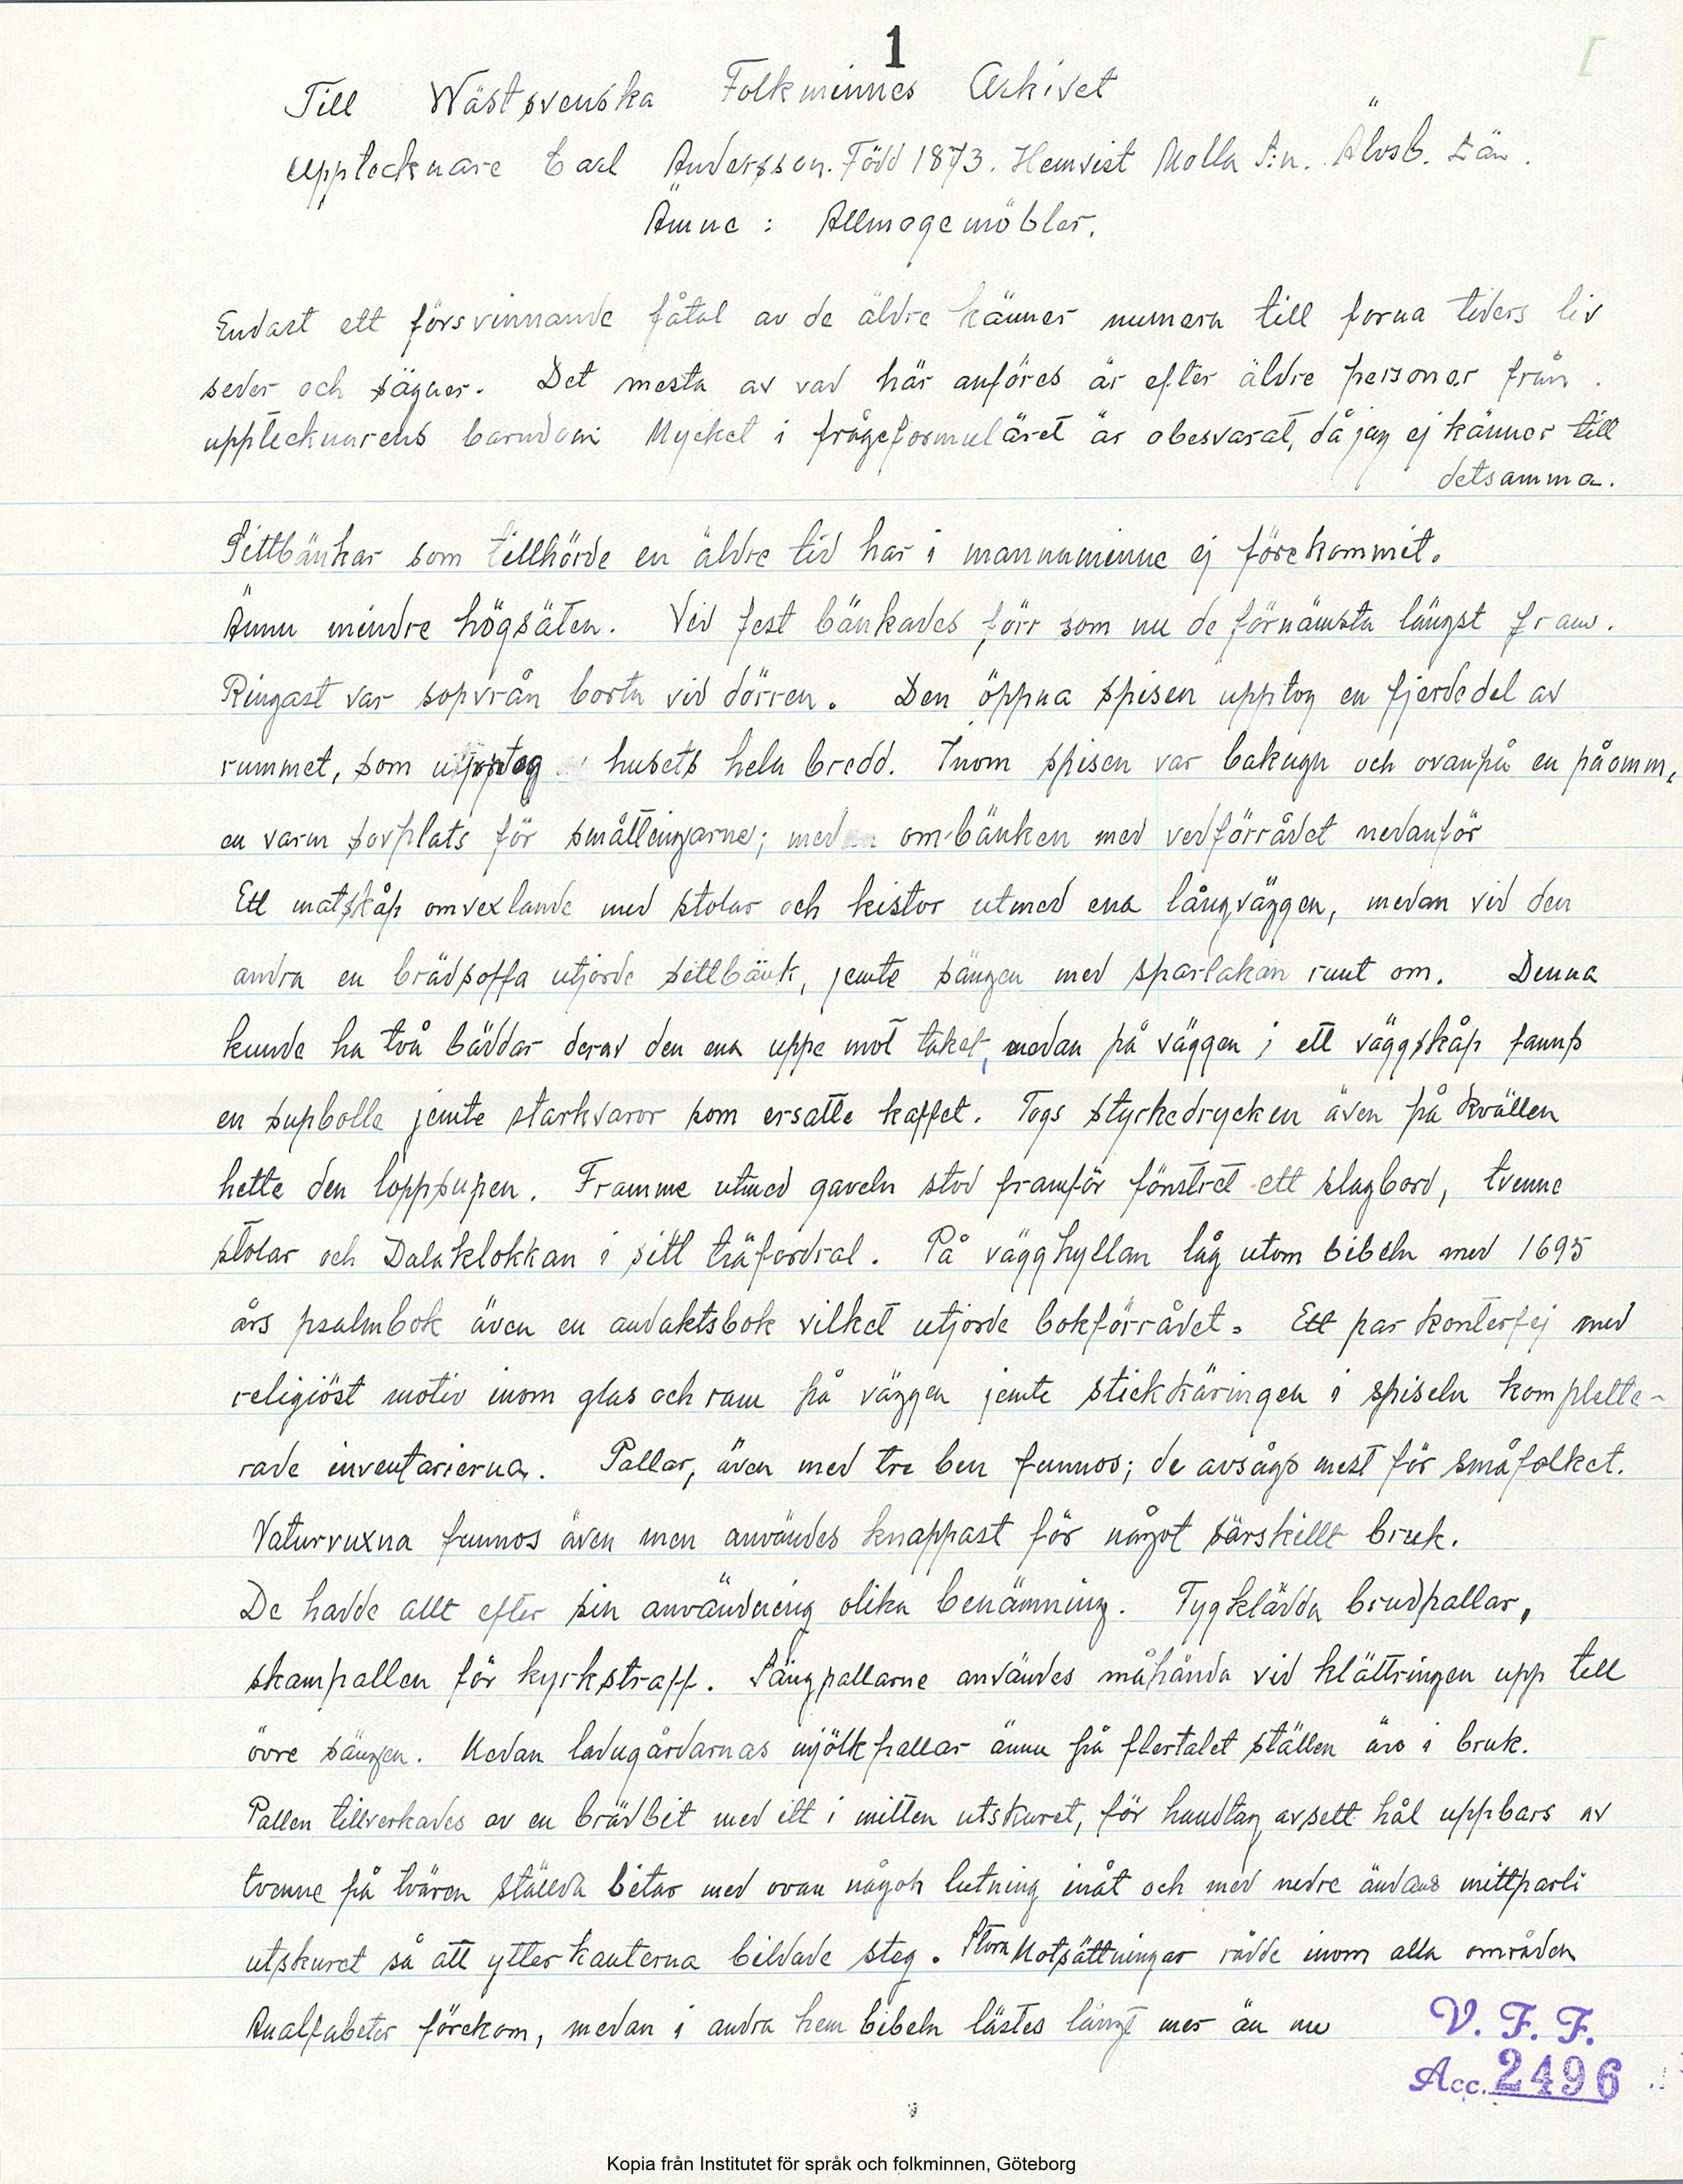 1
Till Wästsvenska Folkminnes Arkivet
Upptecknare Carl Andersson. Född 1873. Hemvist Molla S:n. Älvsb. Län.
Ämne: Allmogemöbler.
Endast ett försvinnande fåtal av de äldre känner numera till forna tiders liv
seder och sägner. Det mesta av vad här anföres är efter äldre personer från
upptecknarens barndom Mycket i frågeformuläret är obesvarat, då jag ej känner till
detsamma.
Sittbänkar som tillhörde en äldre tid har i mannaminne ej förekommit.
Ännu mindre högsäten. Vid fest bänkades förr som nu de förnämsta längst fram.
Ringast var sopvrån borta vid dörren. Den öppna spisen upptog en fjerdedel av
rummet, som upptog husets hela bredd. Inom spisen var bakugn och ovanpå en påomm,
en varm sovplats för småttingarne; medan om-bänken med vedförrådet nedanför
Ett matskåp omvexlande med stolar och kistor utmed ena långväggen, medan vid den
andra en brädsoffa utjorde sittbänk, jemte sängen med sparlakan runt om. Denna
kunde ha två bäddar derav den ena uppe mot taket, medan på väggen i ett väggskåp fanns
en supbolla jemte starkvaror som ersatte kaffet. Togs styrkedrycken även på kvällen
hette den loppsupen. Framme utmed gaveln stod framför fönstret ett slagbord, tvenne
stolar och Dalaklokkan i sitt träfordral. På vägghyllan låg utom bibeln med 1695
års psalmbok även en andaktsbok vilket utjorde bokförrådet. Ett par konterfej med
religiöst motiv inom glas och ram på väggen jemte stickkäringen i spiseln komplette-
rade inventarierna. Pallar, även med tre ben funnos; de avsågs mest för småfolket.
Naturvuxna funnos även men användes knappast för något särskillt bruk.
De hadde allt efter sin användning olika benämning. Tygklädda brudpallar,
skampallen för kyrkstraff. Sängpallarne användes måhända vid klättringen upp till
övre sängen. Medan ladugårdarnas mjölkpallar ännu på flertalet ställen äro i bruk.
Pallen tillverkades av en brädbit med ett i mitten utskuret, för handtag avsett hål uppbars av
tvenne på tvären ställda bitar med ovan någon lutning inåt och med nedre ändans mittparti
utskuret så att ytterkanterna bildade steg. Stora Motsättningar rådde inom alla områden
Analfabeter förekom, medan i andra hem bibeln lästes långt mer än nu
V. F. F.
Acc. 2496
Kopia från Institutet för språk och folkminnen, Göteborg